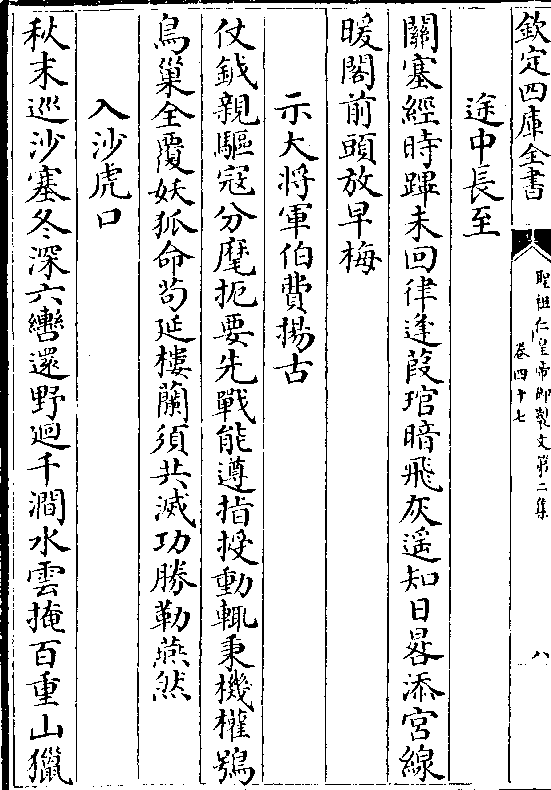 欽定四庫全書
聖祖仁皇帝御製文第二集
卷四十七
八
途中長至
關塞經時蹕未回律逢葭琯暗飛灰遥知日晷添宮線
暖閣前頭放早梅
示大將軍伯費揚古
仗鉞親驅寇分麾扼要先戰能遵指授動輒秉機權鴞
鳥巢全覆妖狐命茍延樓蘭須共滅功勝勒燕然
入沙虎口
秋末巡沙塞冬深六轡還野迴千澗水雲掩百重山獵